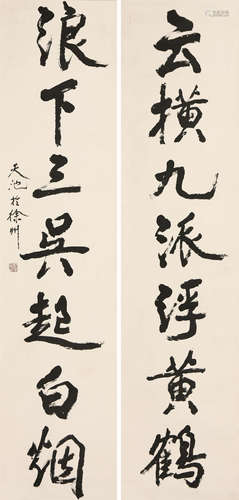 云横九派浮黄鹤
浪下三吴起白烟
天池于徐州